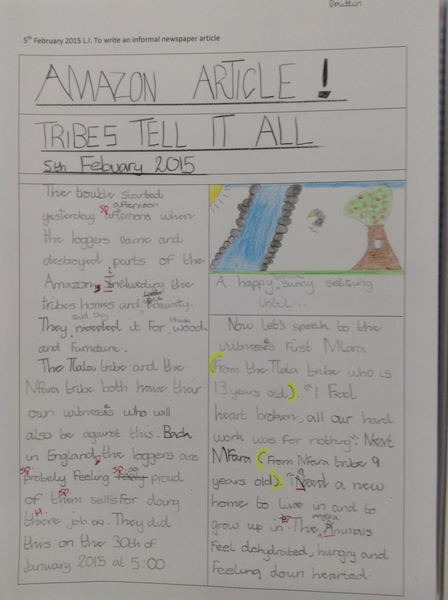 5th February 2015 L.I. To write an informal newspaper article
AMAZON ARTICLE!
TRIBES TELL IT ALL
5th Febuary 2015
The trouble started
afternoon
yesterday sp when
the loggers came and
destroyed parts of the
Amazon,
tribes homes and
said they
They needed it for wood
and furniture.
The Tlala tribe and the
Nfara tribe both have their
own witnesis who will
also be against this. Back
in England, the loggers are
sp sp so
probely feeling proud
sp
of them selfs for doing
job so. They did
this on the 30th of
January 2015 at 5:00.
A happy, sunny
until...
Now let's speech to the
witnesis first Mlara
(from the Tlala tribe who is
13 years old). "I feel
heart broken, all our hard
work was for nothing". Next
Mfara (from Nfara tribe 9
years old). "I Need a new
home to live in and to
grow up in." The Animals
feel dehydrated, hungry and
feeling down hearted.